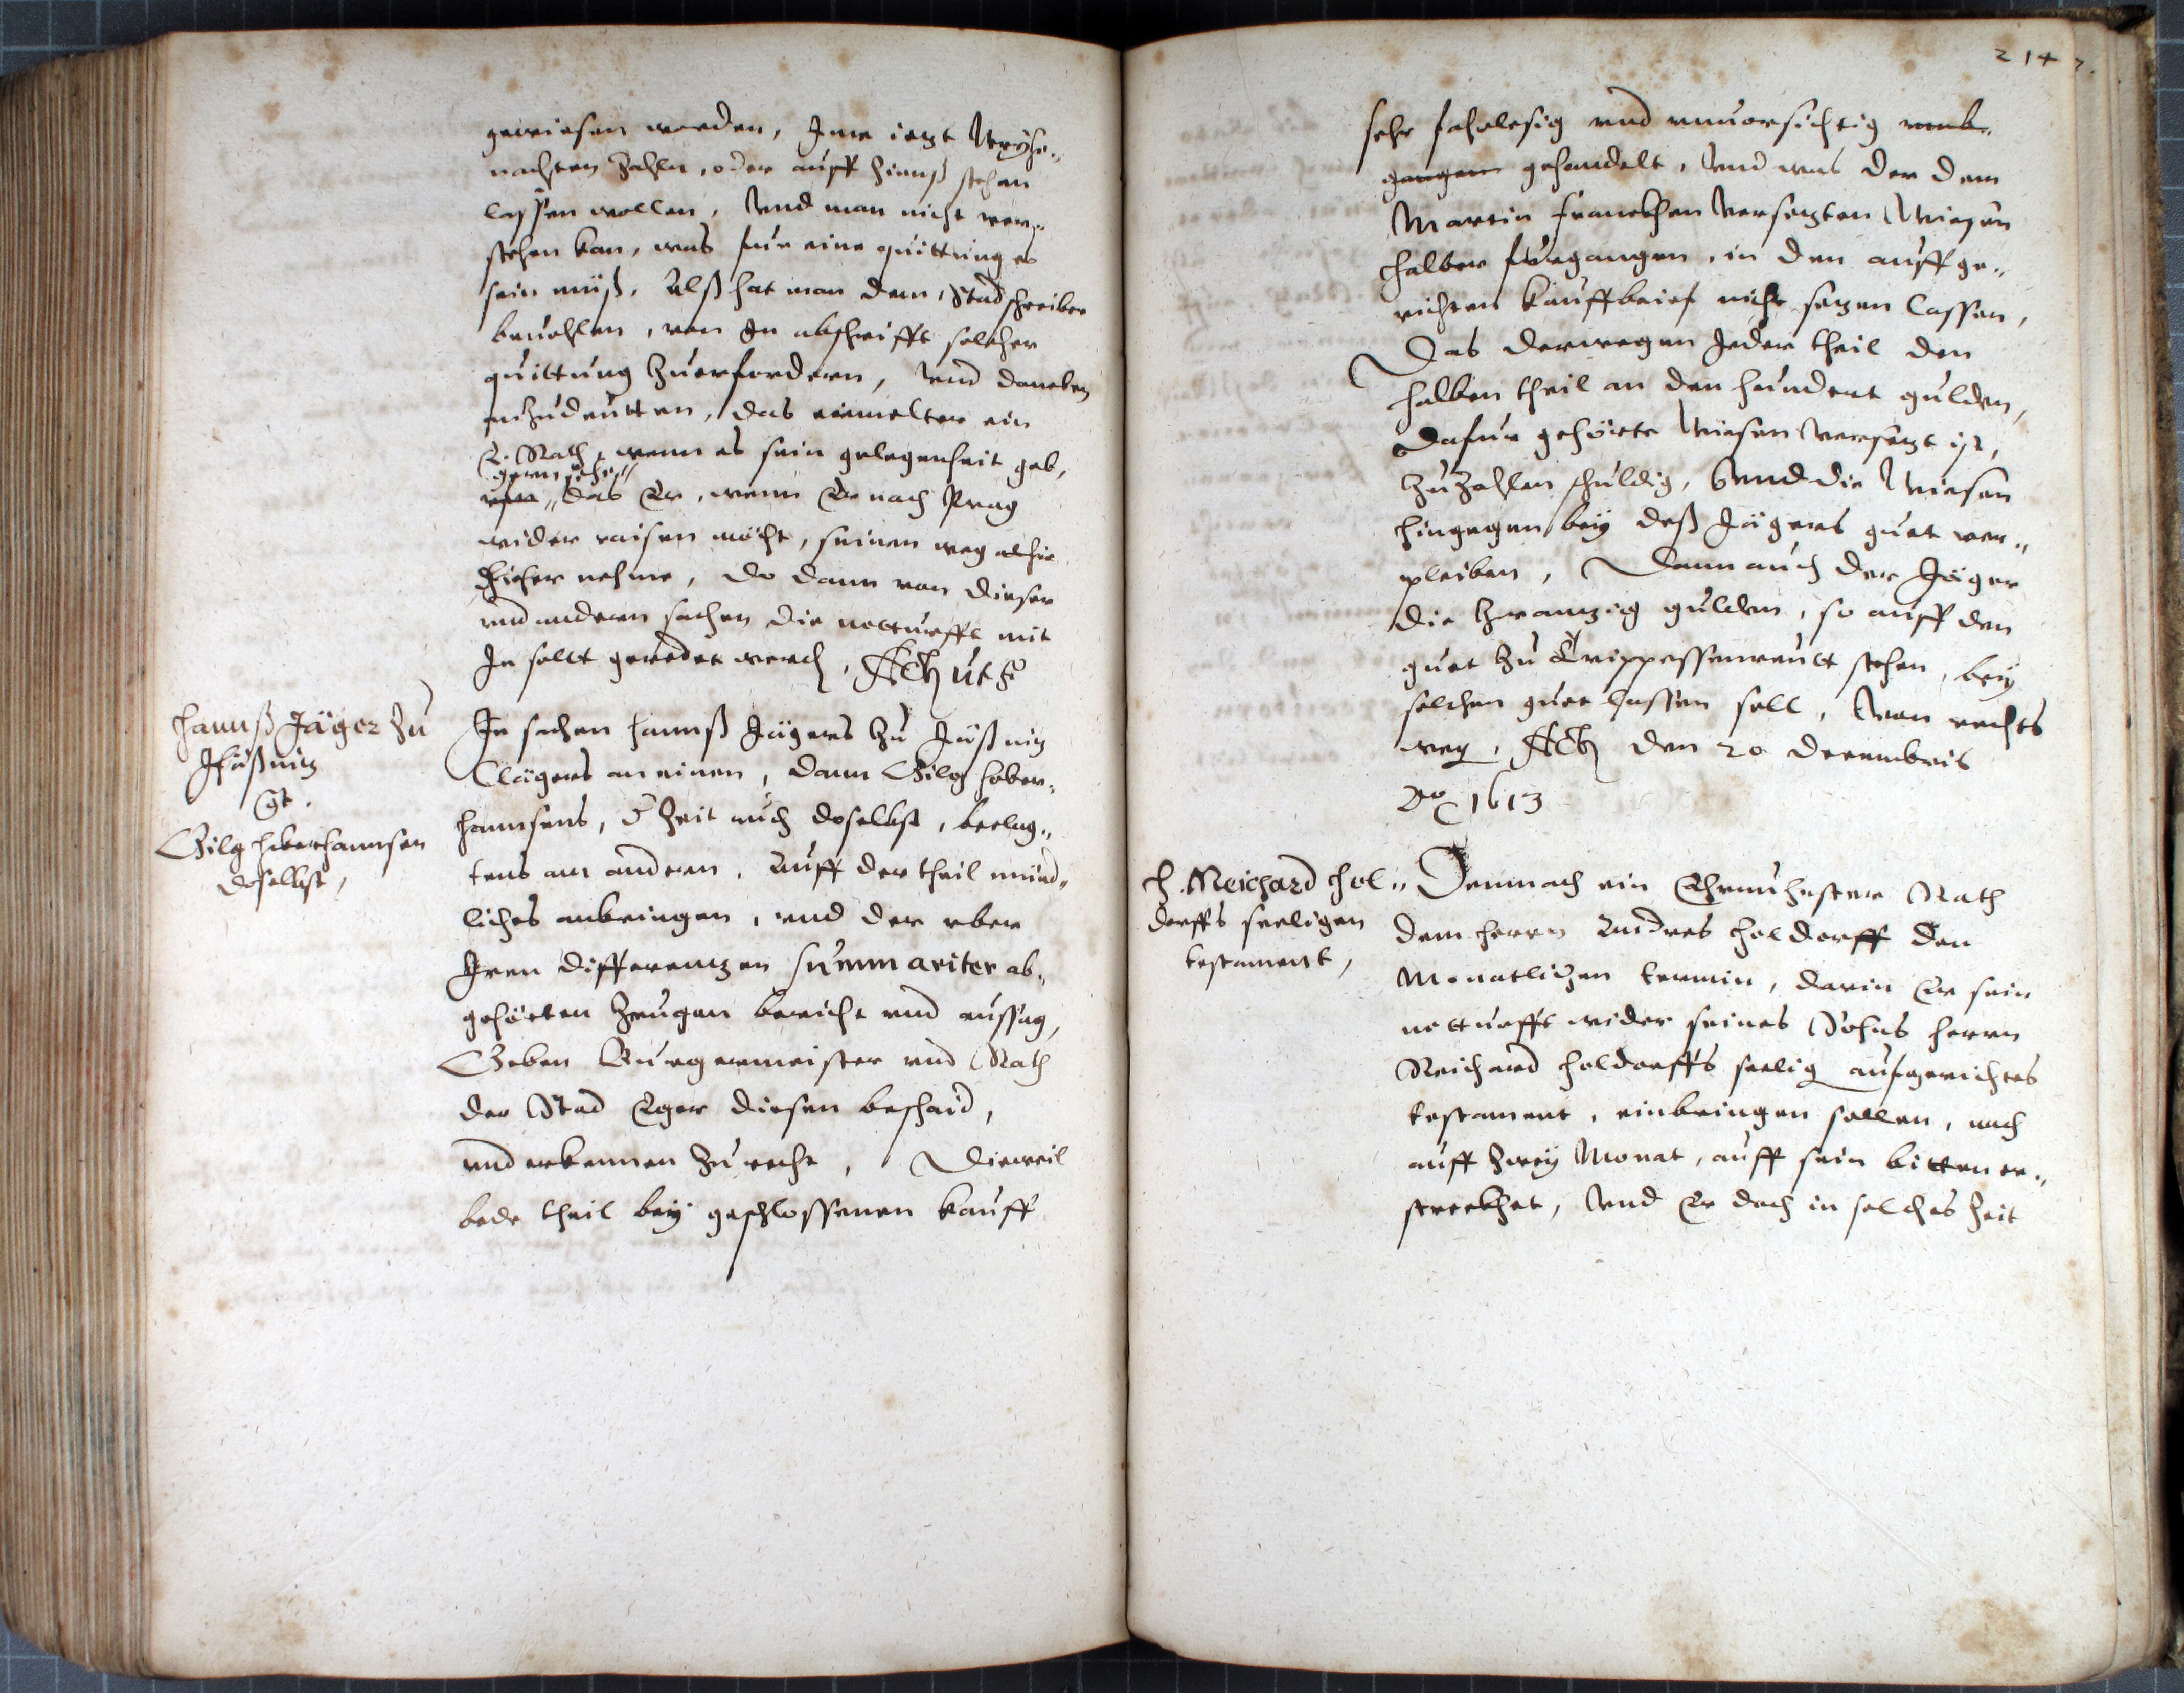 gewiesen worden, Ime ietzt Weyhe„
nachten Zahln, oder auff Zinnß stehen
lassen wollen, Vnd man nicht ver„
stehen kan, was fur eine quittung es
sein muß, Alß hat man dem Stadschreiber
beuohlen, von Im abschrifft solcher
quittung Zuerfordern, Vnd daneben
anZudeutten, das eimelter ein
E. Rath, wenn es sein gelegenheit geb,
gern sehe„
das Er, wenn Er nach Prag
wider raisen möcht, seinen weg alhie
hieher nehme, do dann von dieser
vnd andern sachen die notturfft mit
Im sollt geredet werd, Act: ut s:
Hannß Jäger Zu
Hannß
Gilg Haberhannsen
doselbst,
In sachen Hannß Jägers Zu
Clägers an einem, dann Gilg Haber„
hannsens, d Zeit auch doselbst, beclag„
tens am andern, Auff der theil münd„
liches anbringen, vnd der vber
Iren differentzen summariter ab„
gehörten Zeugen bericht vnd aussag,
Geben Burgermeister vnd Rath
der Stad Eger diesen beschaid,
vnd erkennen Zu recht, Dieweil
bede theil bey geschlossenen kauff
214
sehr fahrlesig vnd vnuorsichtig vmb„
gangen gehandelt, Vnd was der dem
Martin Franckhen Versetzten Wiesen
halber furgangen, in den auffge„
richten kauffbrief nicht setzen lassen,
Das derwegen Jeder theil den
halben theil an den hundert gulden,
dafur gehörte Wiesen Versetzt ist,
ZuZahlen schuldig, Vnd die Wiesen
hingegen bey deß Jägers guet ver„
pleiben, Dann auch der Jäger
die Zwantzig gulden, so auff den
guet Zu stehen, bey
solchen guet lassen soll, Von rechts
weg, Act: den 20 Decembris
Ao 1613
H. Reichard Hol„
dorffs seeligen
testament,
Demnach ein Ehrnuhester Rath
dem herrn Andres Holdorff den
Monatlichen termin, darin Er sein
notturfft wider seines Sohns herrn
Reichard Holdorffs seelig aufgerichtes
testament, einbringen sollen, nach
auff Zwey Monat, auff sein bitten er„
streckhet, Vnd Er doch in solches Zeit